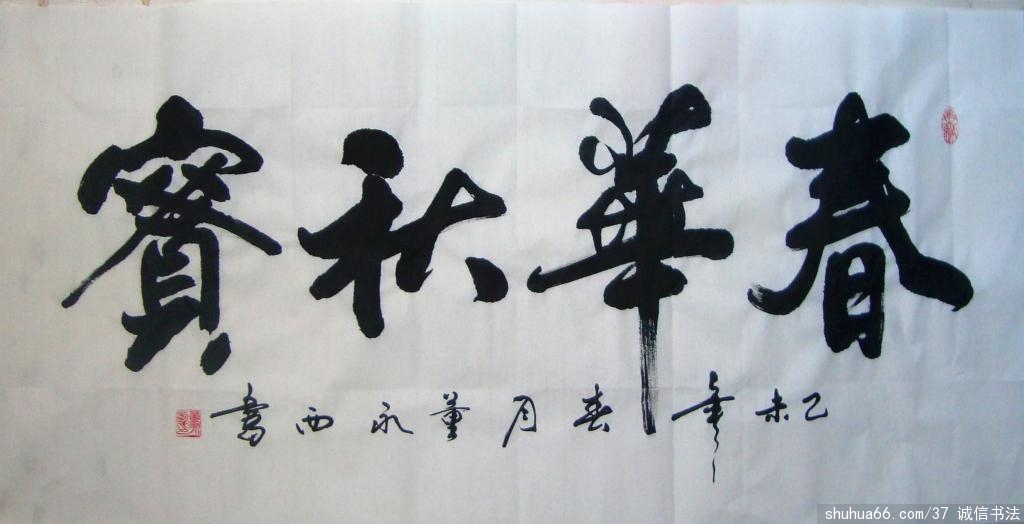 春華秋實
乙未年春月董永西書
shuhua66.com/37 诚信书法